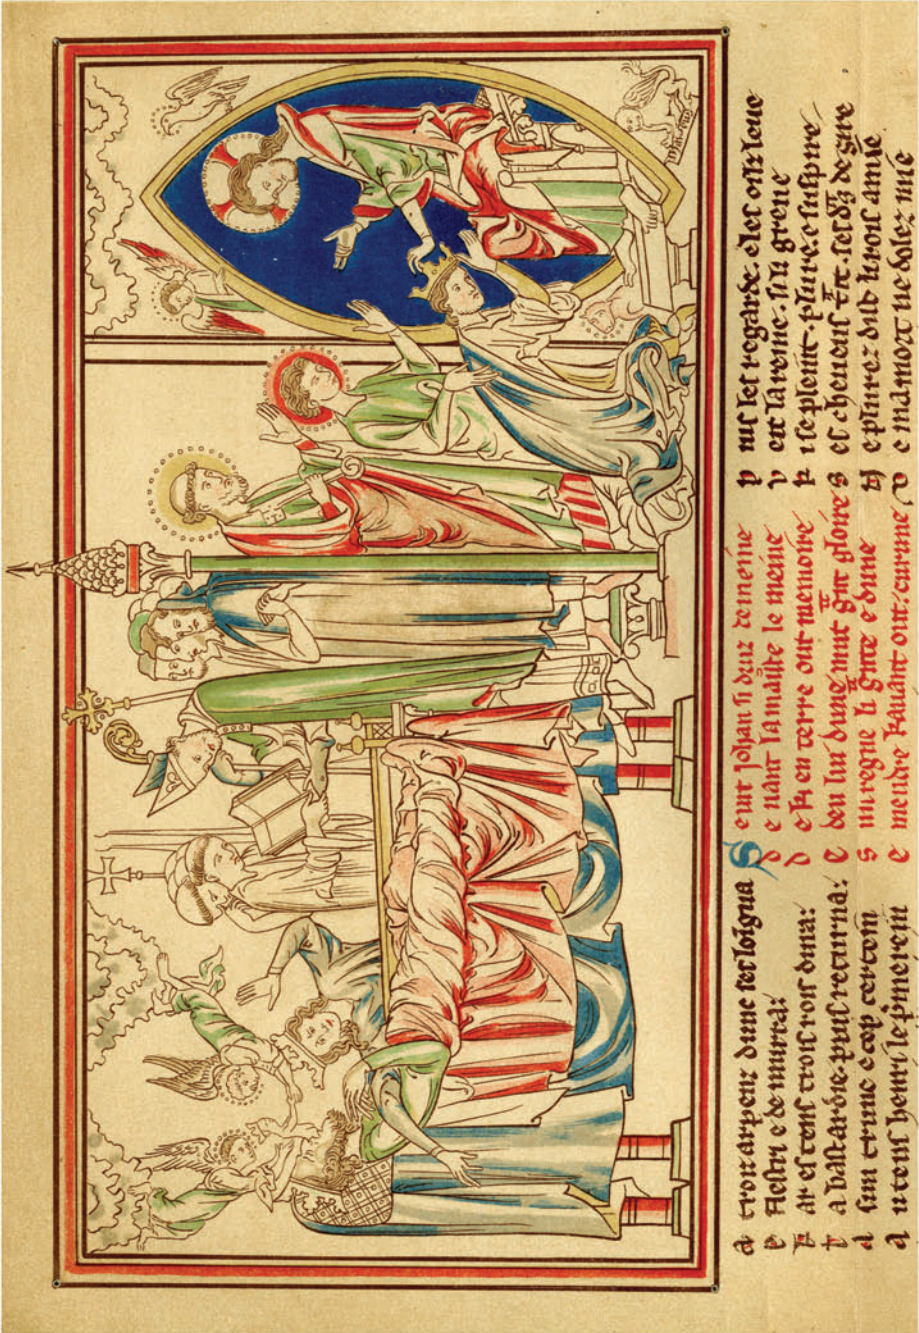 a troiz arpenz dunc ses loigna
e flestri e de murra:
k ar el tens troiz rois dura:
l a bastardie. puis returna:
a sun trunc e cep certein
a u tens henri le pmerein
S eint Johan si deuz demeine
d e uant la maiste le meine
d e ki en terre out memoire
e deu lui dune mut gnt gloire
s un regne li gnte e dune
e mendre kauant out: curune
p uis les regarde. e les oilz leue
v eit la roine. si li greue
k i se pleint. plure. e suspire
s es cheueus ses degire
N e plurez dist li rois amie
d e ma mort ne dolez mie